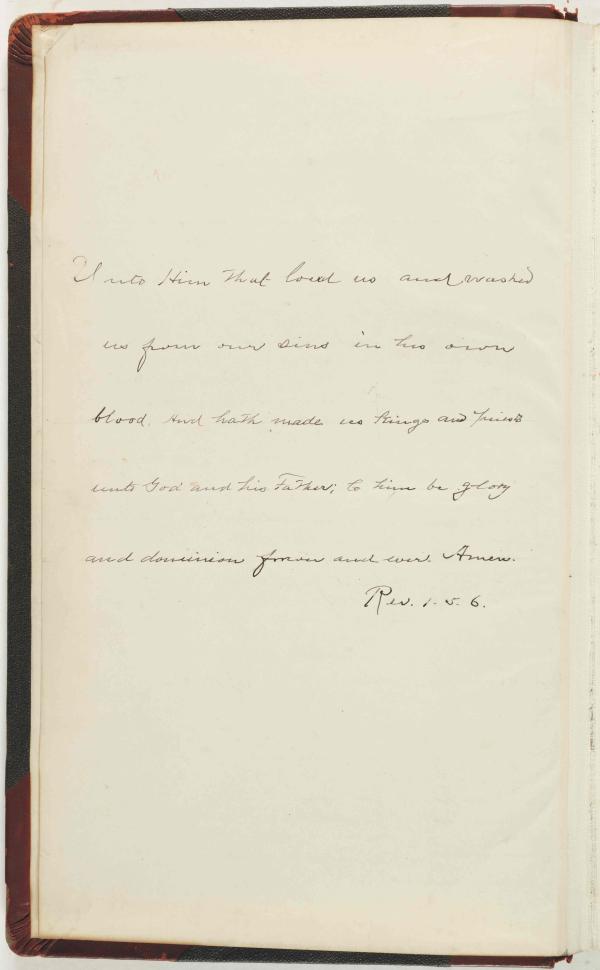 Unto Him that loved us and washed
us from our sins in his own
blood. And hath made us Kings and priests
unto God and his Father; to him be glory
and dominion forever and ever. Amen.
Rev. 1. 5. 6.